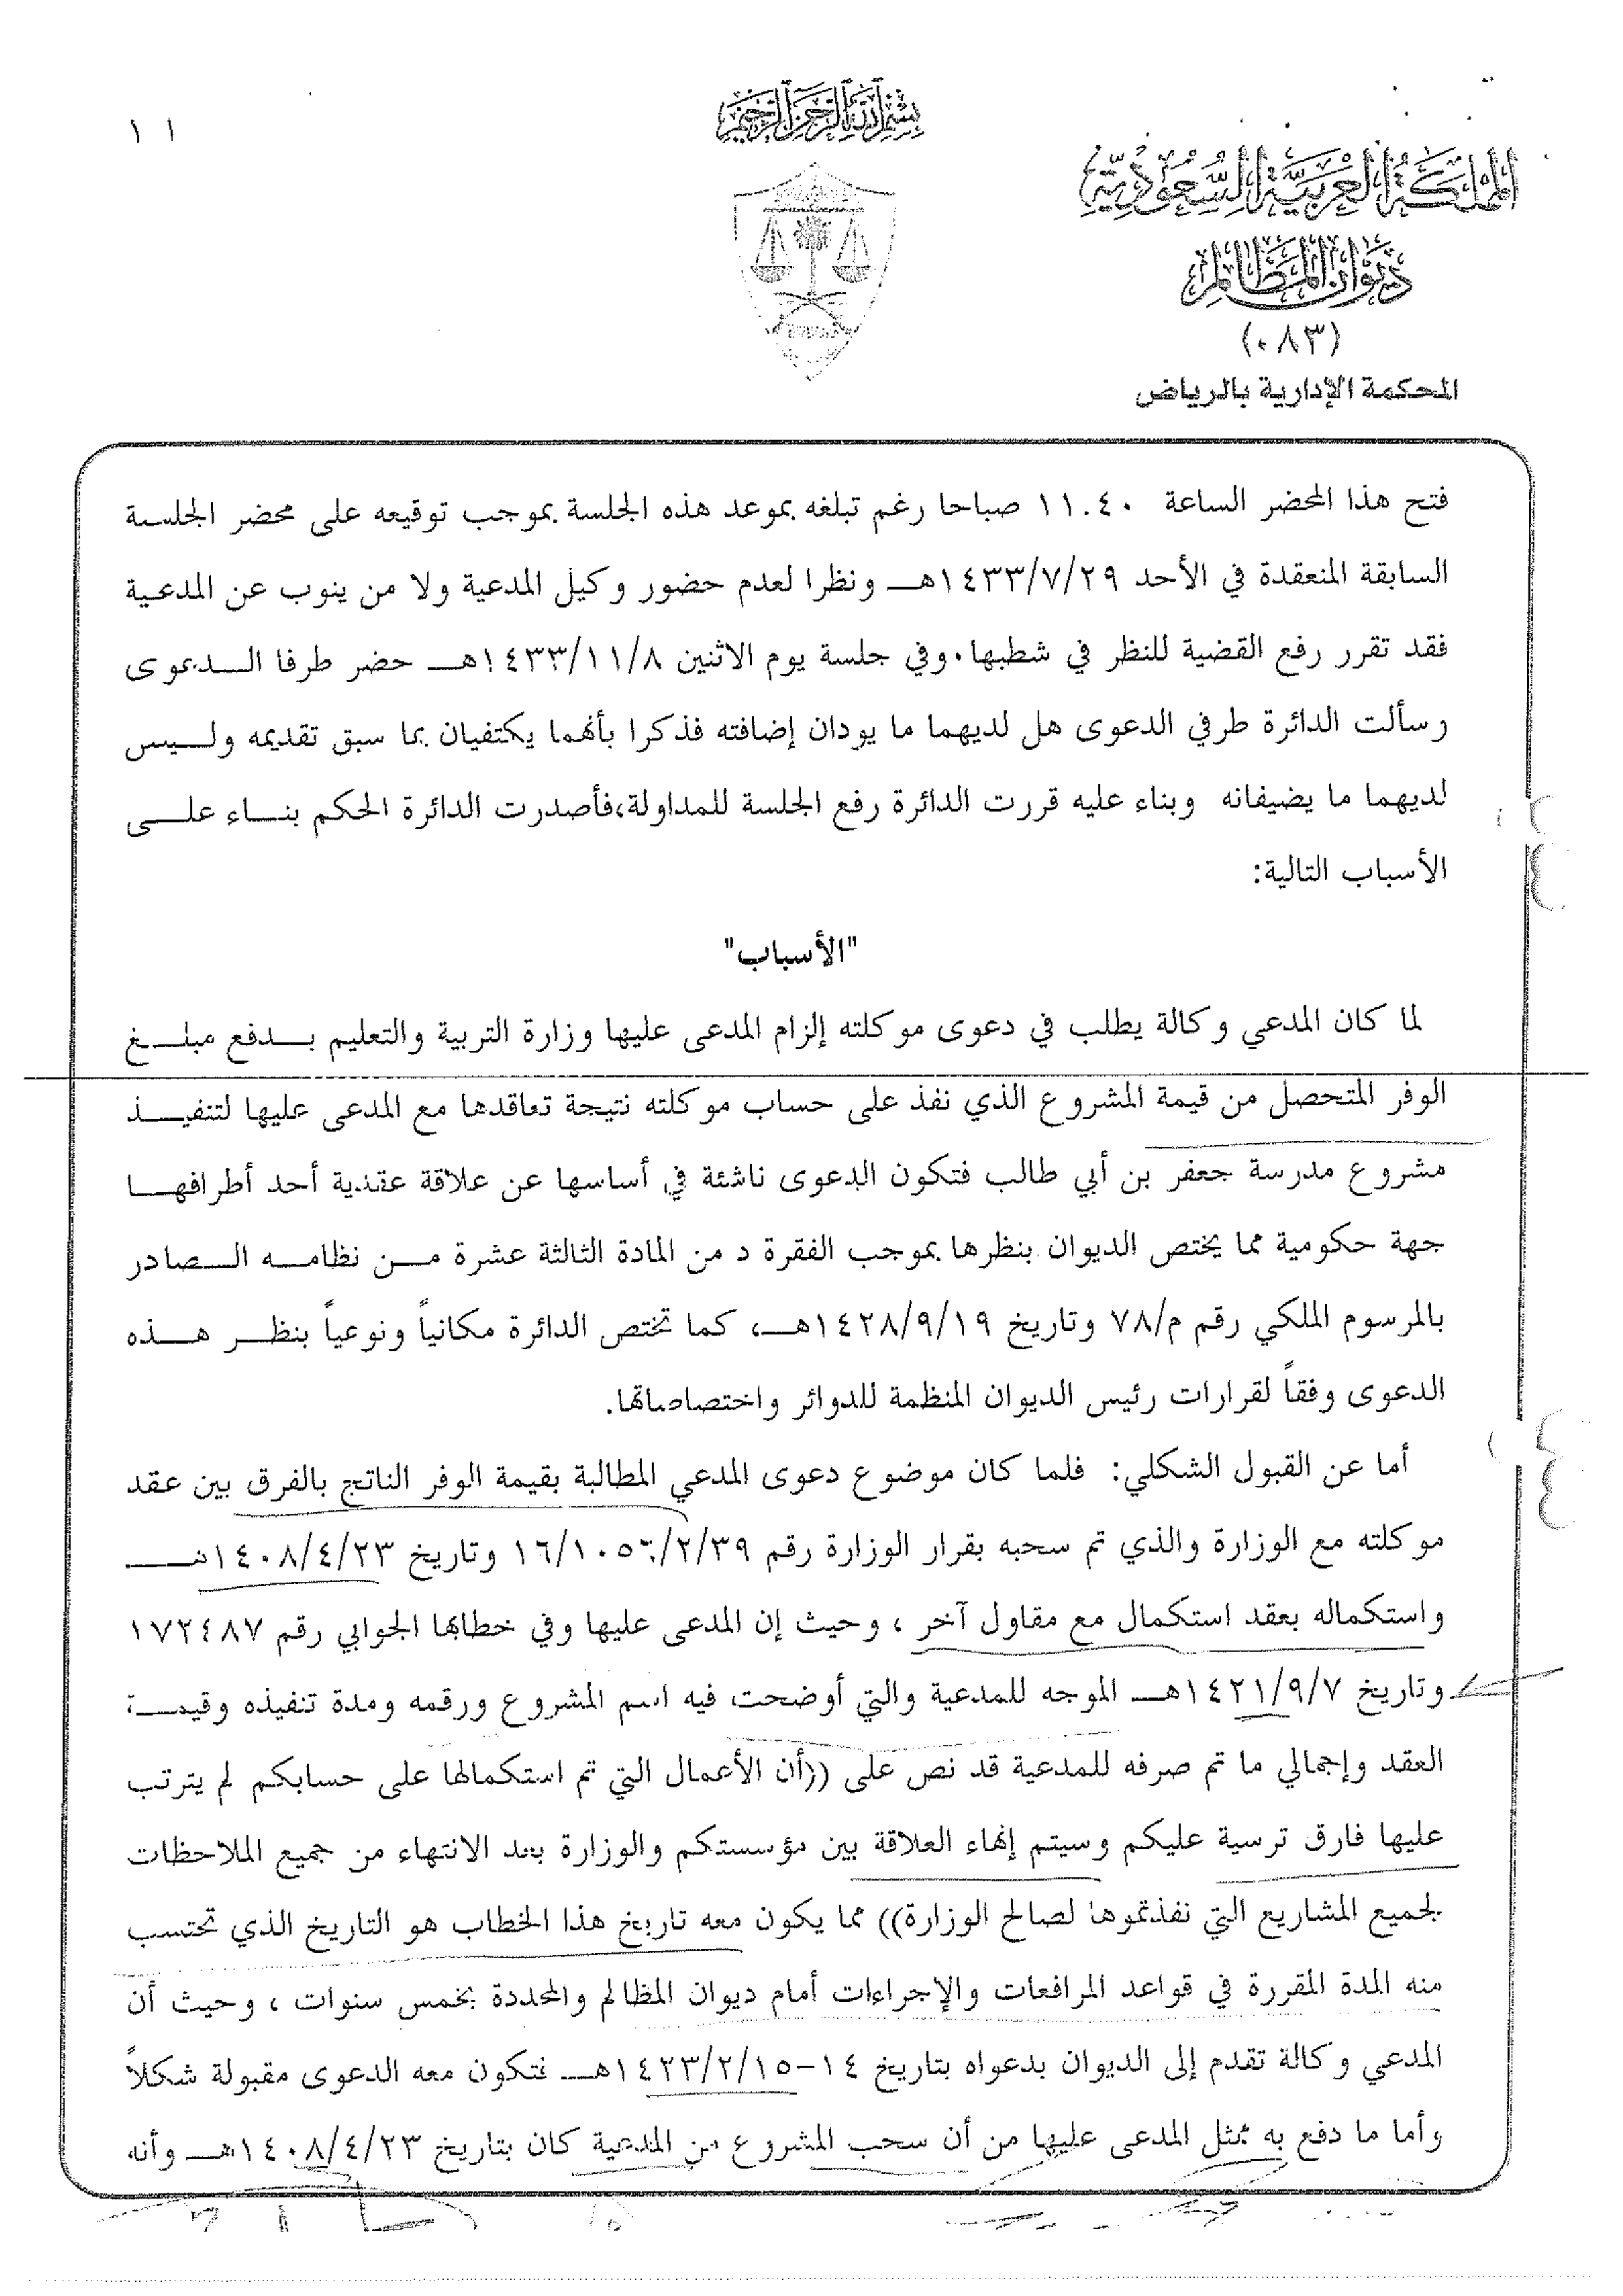 ١١
بسم الله الرحمن الرحيم
المملكة العربية السعودية
ديوان المظالم
(٠٨٣)
المحكمة الإدارية بالرياض
فتح هذا المحضر الساعة ١١.٤٠ صباحا رغم تبلغه بموعد هذه الجلسة بموجب توقيعه على محضر الجلسة
السابقة المنعقدة في الأحد ١٤٣٣/٧/٢٩هـ ونظرا لعدم حضور وكيل المدعية ولا من ينوب عن المدعية
فقد تقرر رفع القضية للنظر في شطبها.وفي جلسة يوم الاثنين ١٤٣٣/١١/٨هـ حضر طرفا الدعوى
وسألت الدائرة طرفي الدعوى هل لديهما ما يودان إضافته فذكرا بأنهما يكتفيان بما سبق تقديمه وليس
لديهما ما يضيفانه وبناء عليه قررت الدائرة رفع الجلسة للمداولة،فأصدرت الدائرة الحكم بناء على
الأسباب التالية:
"الأسباب"
لما كان المدعي وكالة يطلب في دعوى موكلته إلزام المدعى عليها وزارة التربية والتعليم بدفع مبلغ
الوفر المتحصل من قيمة المشروع الذي نفذ على حساب موكلته نتيجة تعاقدها مع المدعى عليها لتنفيذ
مشروع مدرسة جعفر بن أبي طالب فتكون الدعوى ناشئة في أساسها عن علاقة عقدية أحد أطرافها
جهة حكومية مما يختص الديوان بنظرها بموجب الفقرة د من المادة الثالثة عشرة من نظامه الصادر
بالمرسوم الملكي رقم م/٧٨ وتاريخ ١٤٢٨/٩/١٩هـ، كما تختص الدائرة مكانياً ونوعياً بنظر هذه
الدعوى وفقاً لقرارات رئيس الديوان المنظمة للدوائر واختصاصاتها.
أما عن القبول الشكلي: فلما كان موضوع دعوى المدعي المطالبة بقيمة الوفر الناتج بالفرق بين عقد
موكلته مع الوزارة والذي تم سحبه بقرار الوزارة رقم ١٦/١٠٥٦/٢/٣٩ وتاريخ ١٤٠٨/٤/٢٣هـ
واستكماله بعقد استكمال مع مقاول آخر ، وحيث إن المدعى عليها وفي خطابها الجوابي رقم ١٧٢٤٨٧
وتاريخ ١٤٢١/٩/٧هـ الموجه للمدعية والتي أوضحت فيه اسم المشروع ورقمه ومدة تنفيذه وقيمة
العقد وإجمالي ما تم صرفه للمدعية قد نص على ((أن الأعمال التي تم استكمالها على حسابكم لم يترتب
عليها فارق ترسية عليكم وسيتم إنهاء العلاقة بين مؤسستكم والوزارة بعد الانتهاء من جميع الملاحظات
لجميع المشاريع التي نفذتموها لصالح الوزارة)) مما يكون معه تاريخ هذا الخطاب هو التاريخ الذي تحتسب
منه المدة المقررة في قواعد المرافعات والإجراءات أمام ديوان المظالم والمحددة بخمس سنوات ، وحيث أن
المدعي وكالة تقدم إلى الديوان بدعواه بتاريخ ١٤-١٤٢٣/٢/١٥هـ فتكون معه الدعوى مقبولة شكلاً
وأما ما دفع به ممثل المدعى عليها من أن سحب المشروع من المدعية كان بتاريخ ١٤٠٨/٤/٢٣هـ وأنه